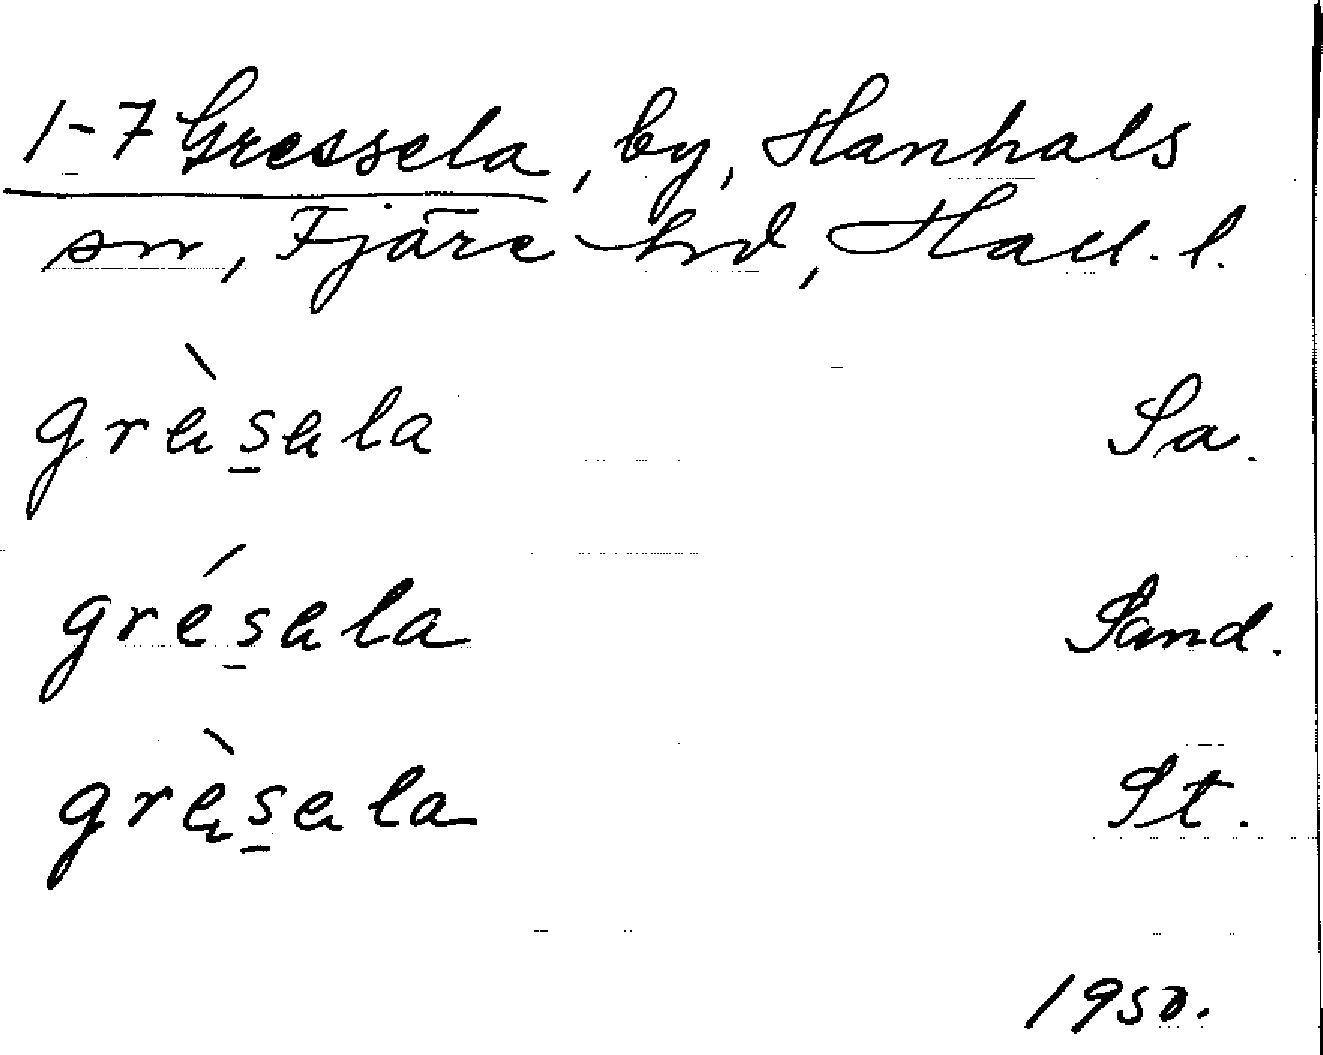 1-7 Gressela, by, Hanhals
sn, Fjäre hd, Hall. l.
grèsela Sa.
grésela Sand.
grèsela St.
1950.